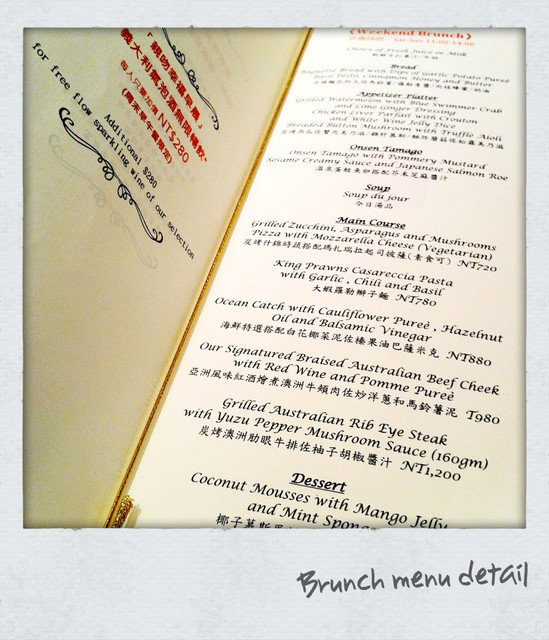 「親吻幸福早餐」
義大利氣泡酒無限暢飲~
每人只要加價 NT$280
(週末早午餐限定)
Additional $280
for free flow sparkling wine of our selection
《Weekend Brunch》
Sat-Sun 11:00-14:00
Choice of Fresh Juice or Milk
Bread
Baguette Bread with Dips of Garlic Potato Pureé
Basil Pesto, Cinnamon Honey and Butter
Appetizer Platter
Grilled Watermelon with Blue Swimmer Crab
and Lime Ginger Dressing
Chicken Liver Parfait with Crouton
and White Wine Jelly Dice
Breaded Button Mushroom with Truffle Aioli
Onsen Tamago
Onsen Tamago with Pommery Mustard
Sesame Creamy Sauce and Japanese Salmon Roe
溫泉蛋鮭魚卵搭配芥末芝麻醬汁
Soup
Soup du jour
今日湯品
Main Course
Grilled Zucchini, Asparagus and Mushrooms
Pizza with Mozzarella Cheese (Vegetarian)
炭烤什錦時蔬搭配瑪扎瑞拉起司披薩(素食可) NT720
King Prawns Casareccia Pasta
with Garlic , Chili and Basil
大蝦羅勒辮子麵 NT780
Ocean Catch with Cauliflower Pureè , Hazelnut
Oil and Balsamic Vinegar
海鮮特選搭配白花椰菜泥佐榛果油巴薩米克 NT880
Our Signatured Braised Australian Beef Cheek
with Red Wine and Pomme Pureè
亞洲風味紅酒燴煮澳洲牛頰肉佐炒洋蔥和馬鈴薯泥 T980
Grilled Australian Rib Eye Steak
with Yuzu Pepper Mushroom Sauce (160gm)
炭烤澳洲肋眼牛排佐柚子胡椒醬汁 NT1,200
Dessert
Coconut Mousses with Mango Jelly
and Mint Spong
椰子慕斯
Brunch menu detail